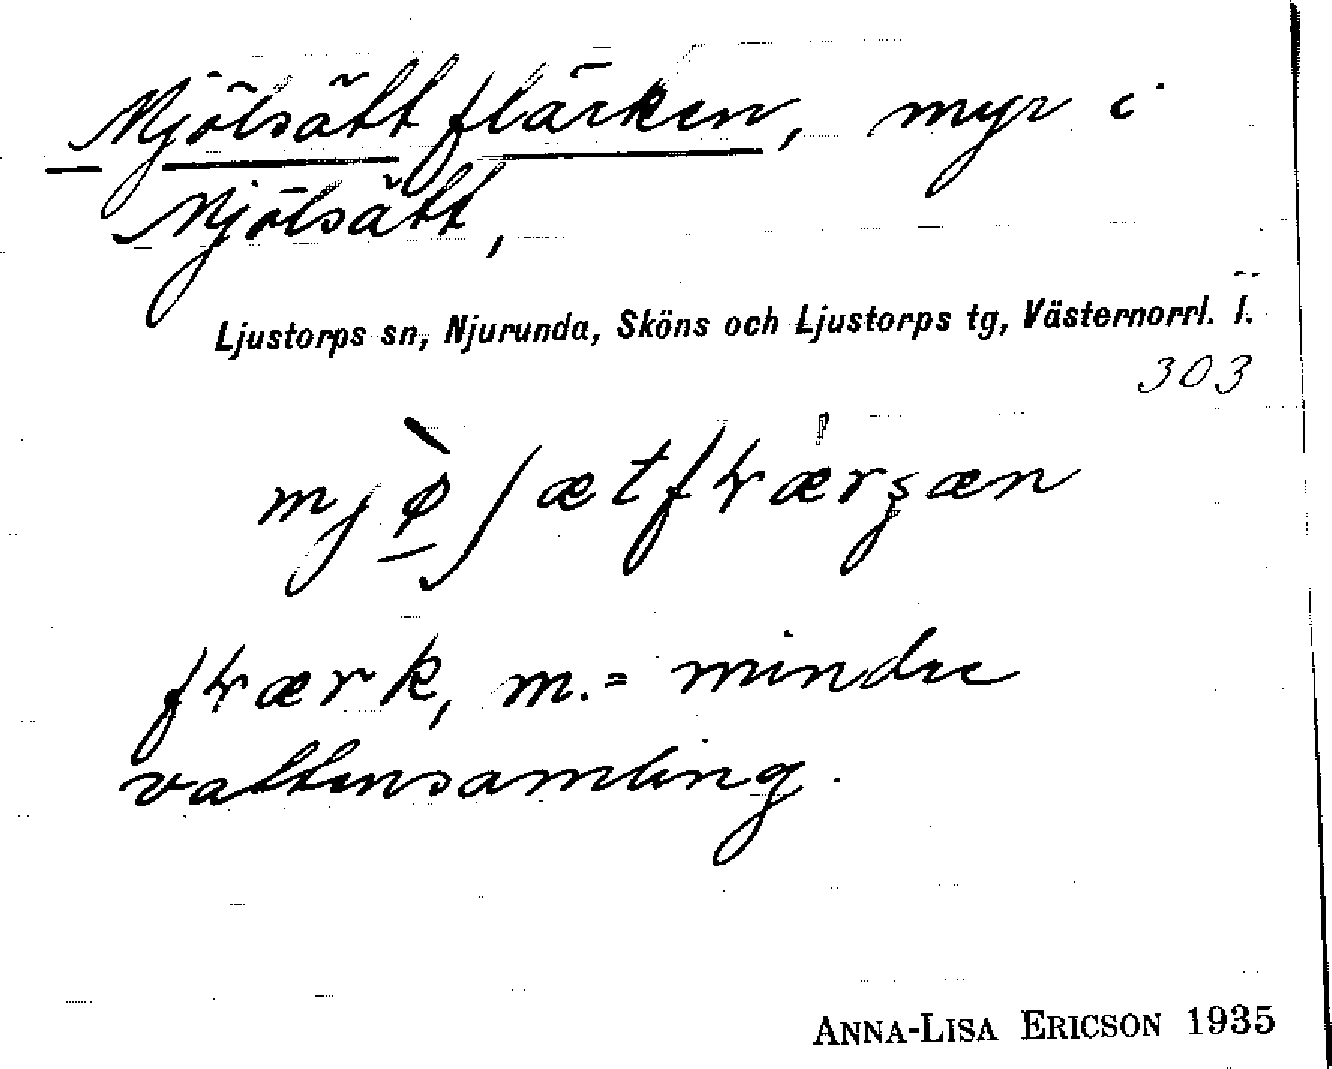 Mjölsättflärken, myr i
Mjölsätt,
Ljustorps sn, Njurunda, Sköns och Ljustorps tg, Västernorrl. l.
303
fɽærk, m. = mindre
vattensamling.
ANNA-LISA ERICSON 1935